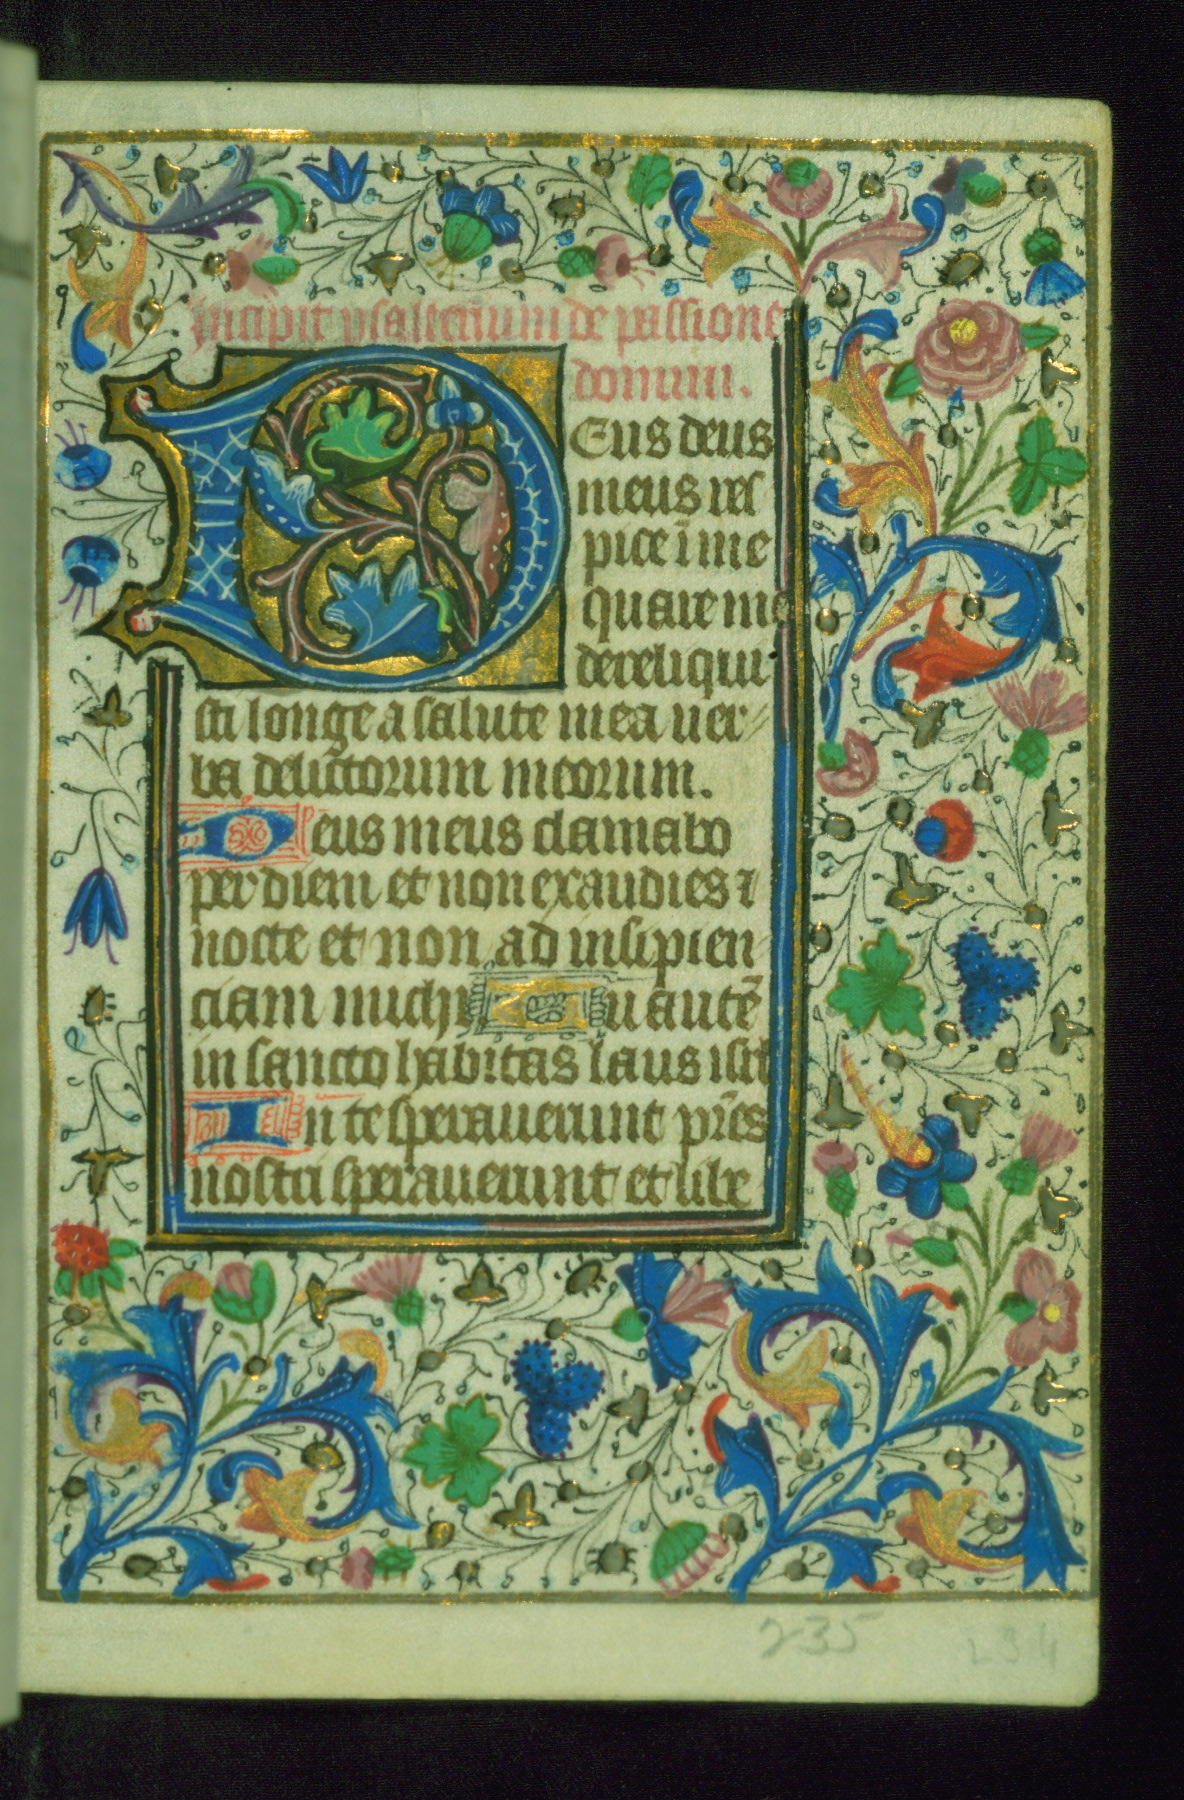 Incipit psalterium de passione
domini.
Deus deus
meus res
pice ī me
quare me
dereliqui
sti longe a salute mea uer
ba delictorum meorum.
Deus meus clamabo
per diem et non exaudies ⁊
nocte et non ad insipien
ciam michi Tu autē
in sancto habitas laus isrl
In te sperauerunt pr̄es
nostri sperauerunt et libe
235
234